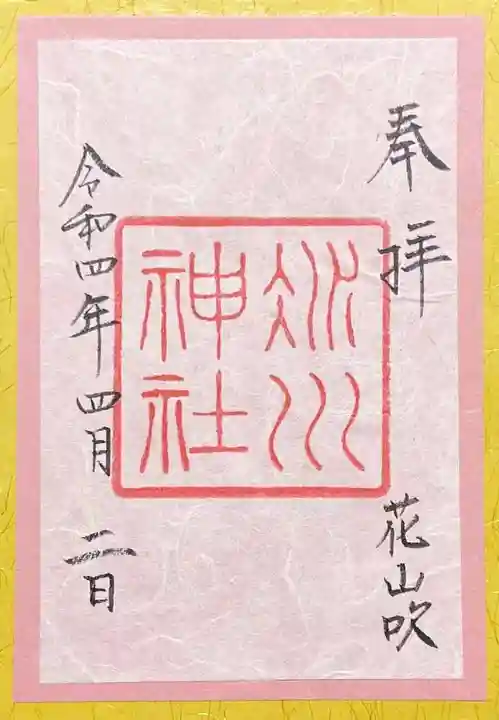 奉拝
花山吹
冰川
神社
令和四年四月二日